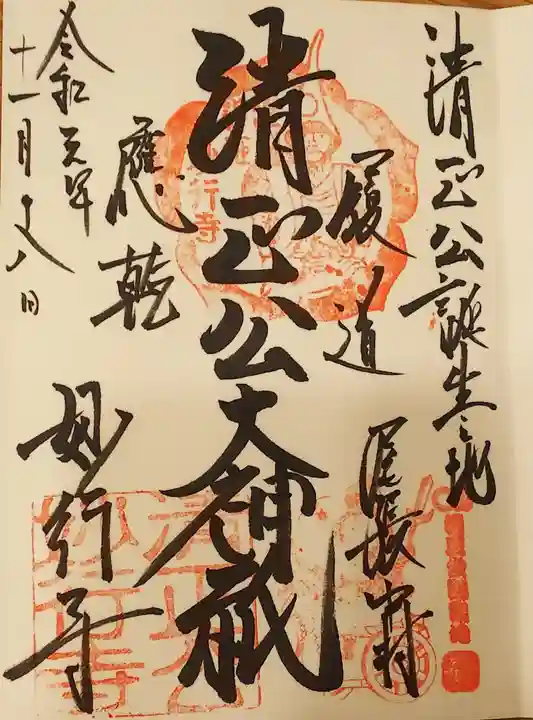 清正公誕生之地
尾張
履道
清正公大神祇
應乾
妙行寺
令和元年
十一月廿八日